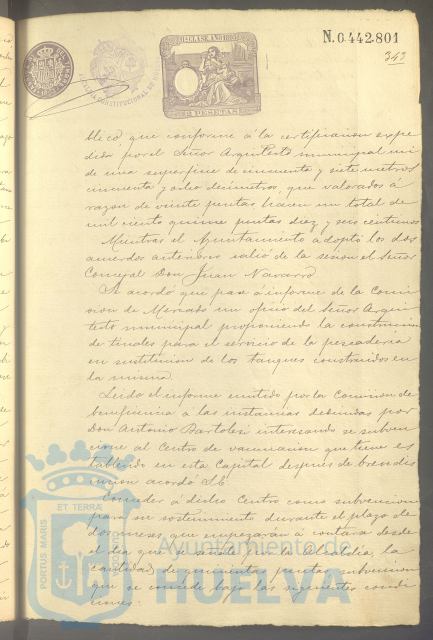 N. 0.442.801
343
11ª CLASE. AÑO 1895
ALCALDIA CONSTITUCIONAL DE HUELVA
PESETAS
blico, que conforme á la certificacion expe
dida por el Señor Arquitecto municipal mi
de una superficie de cincuenta y siete metros
cincuenta y ocho decimetros, que valorados á
razon de veinte pesetas hacen un total de
mil ciento quince pesetas diez y seis centimos
Mientras el Ayuntamiento adoptó los dos
acuerdos anteriores salió de la sesion el Señor
Concejal Don Juan Navarro
Se acordó que pase á informe de la Comi
sion de Mercado un oficio del Señor Arqui
tecto municipal proponiendo la construccion
de tinales para el servicio de la pescaderia
en sustitucion de los tanques construidos en
la misma.
Leido el informe emitido por la Comision de
beneficencia á las instancias deducidas por
Don Antonio Bartolesi interesando se subven
cione al Centro de vacunacion que tiene es
tablecido en esta Capital despues de breve dis
cusion acordó S. E.
Conceder á dicho Centro como subvencion
para su sostenimiento durante el plazo de
dos meses que empezarán á contarse desde
el dia que se señale por la Alcaldia, la
cantidad de quinientas pesetas, subvencion
que se concede bajo las siguientes condi
ciones:
PORTUS MARIS ET TERRAE
Ayuntamiento de
HUELVA